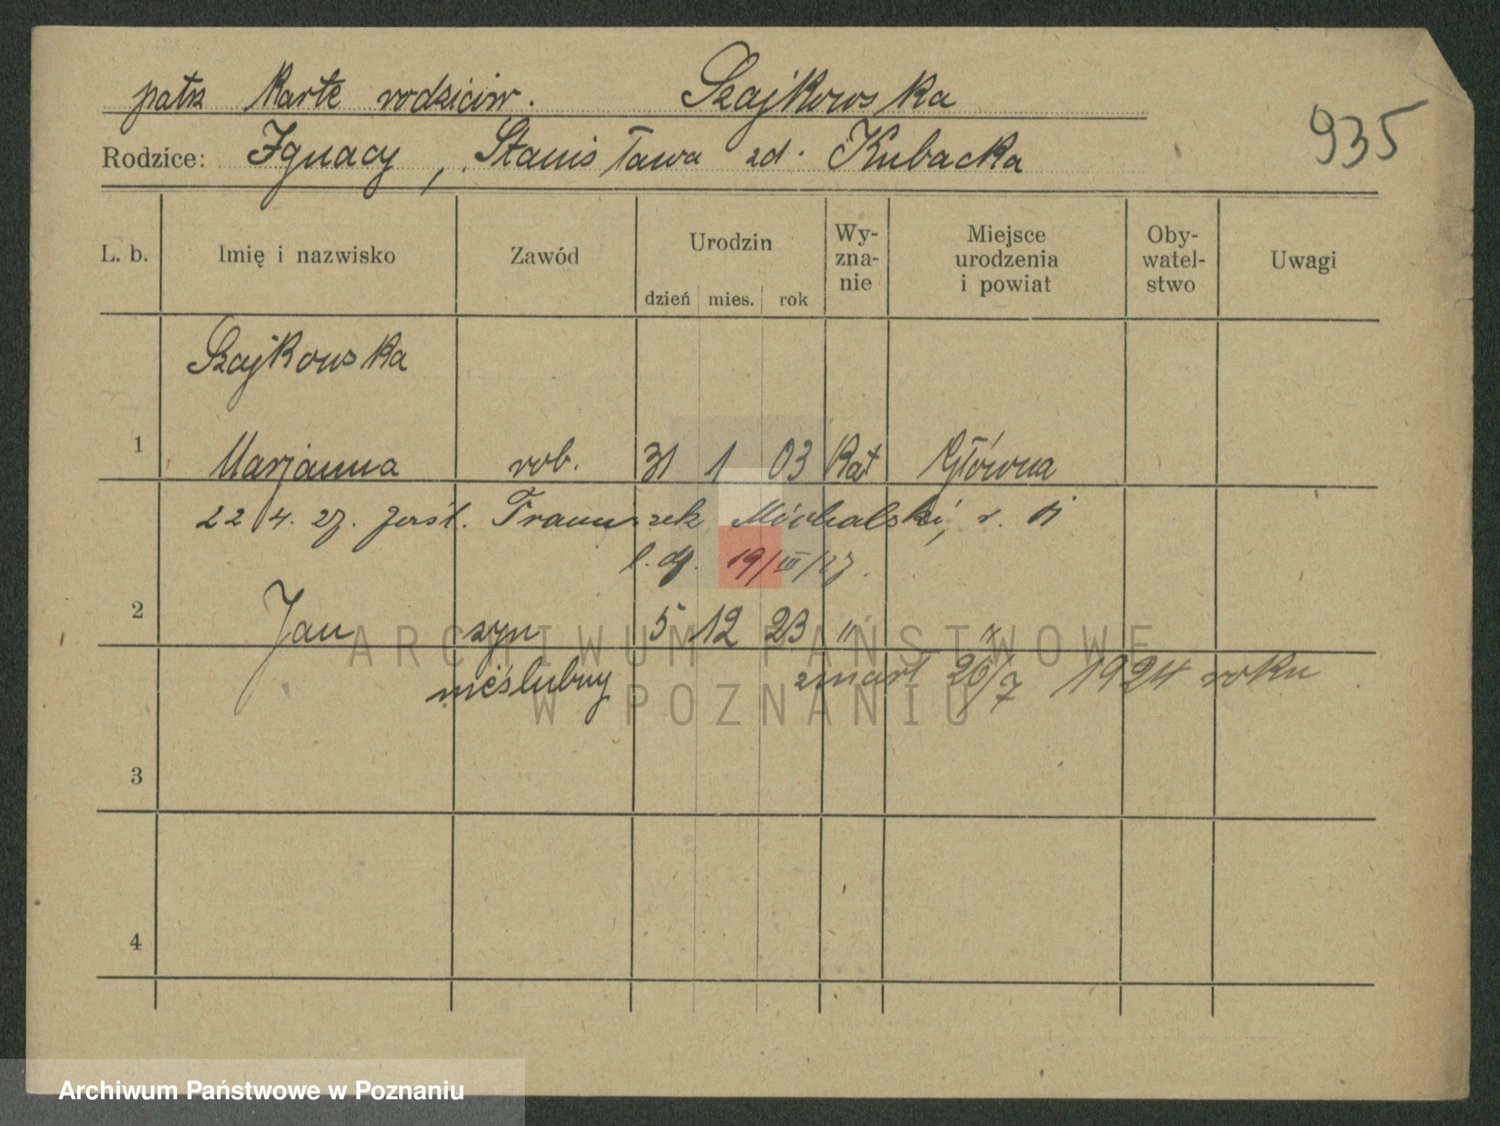 patrz Kartę rodziców. Szajkowska
935
Rodzice: Ignacy, Stanisława zd. Kubacka
L. b. Imię i nazwisko Zawód Urodzin dzień mies. rok Wy-zna-nie Miejsce urodzenia i powiat Oby-watel-stwo Uwagi
Szajkowska
1 Marjanna rob. 31 1 03 Kat Główna
22/4. 27. Franciszek Michalski, r.
19/III/27.
2 Jan syn 5 12 23 " "
nieślubny zmarł 26/7 1924 roku
3
4
ARCHIWUM PAŃSTWOWE
W POZNANIU
Archiwum Państwowe w Poznaniu